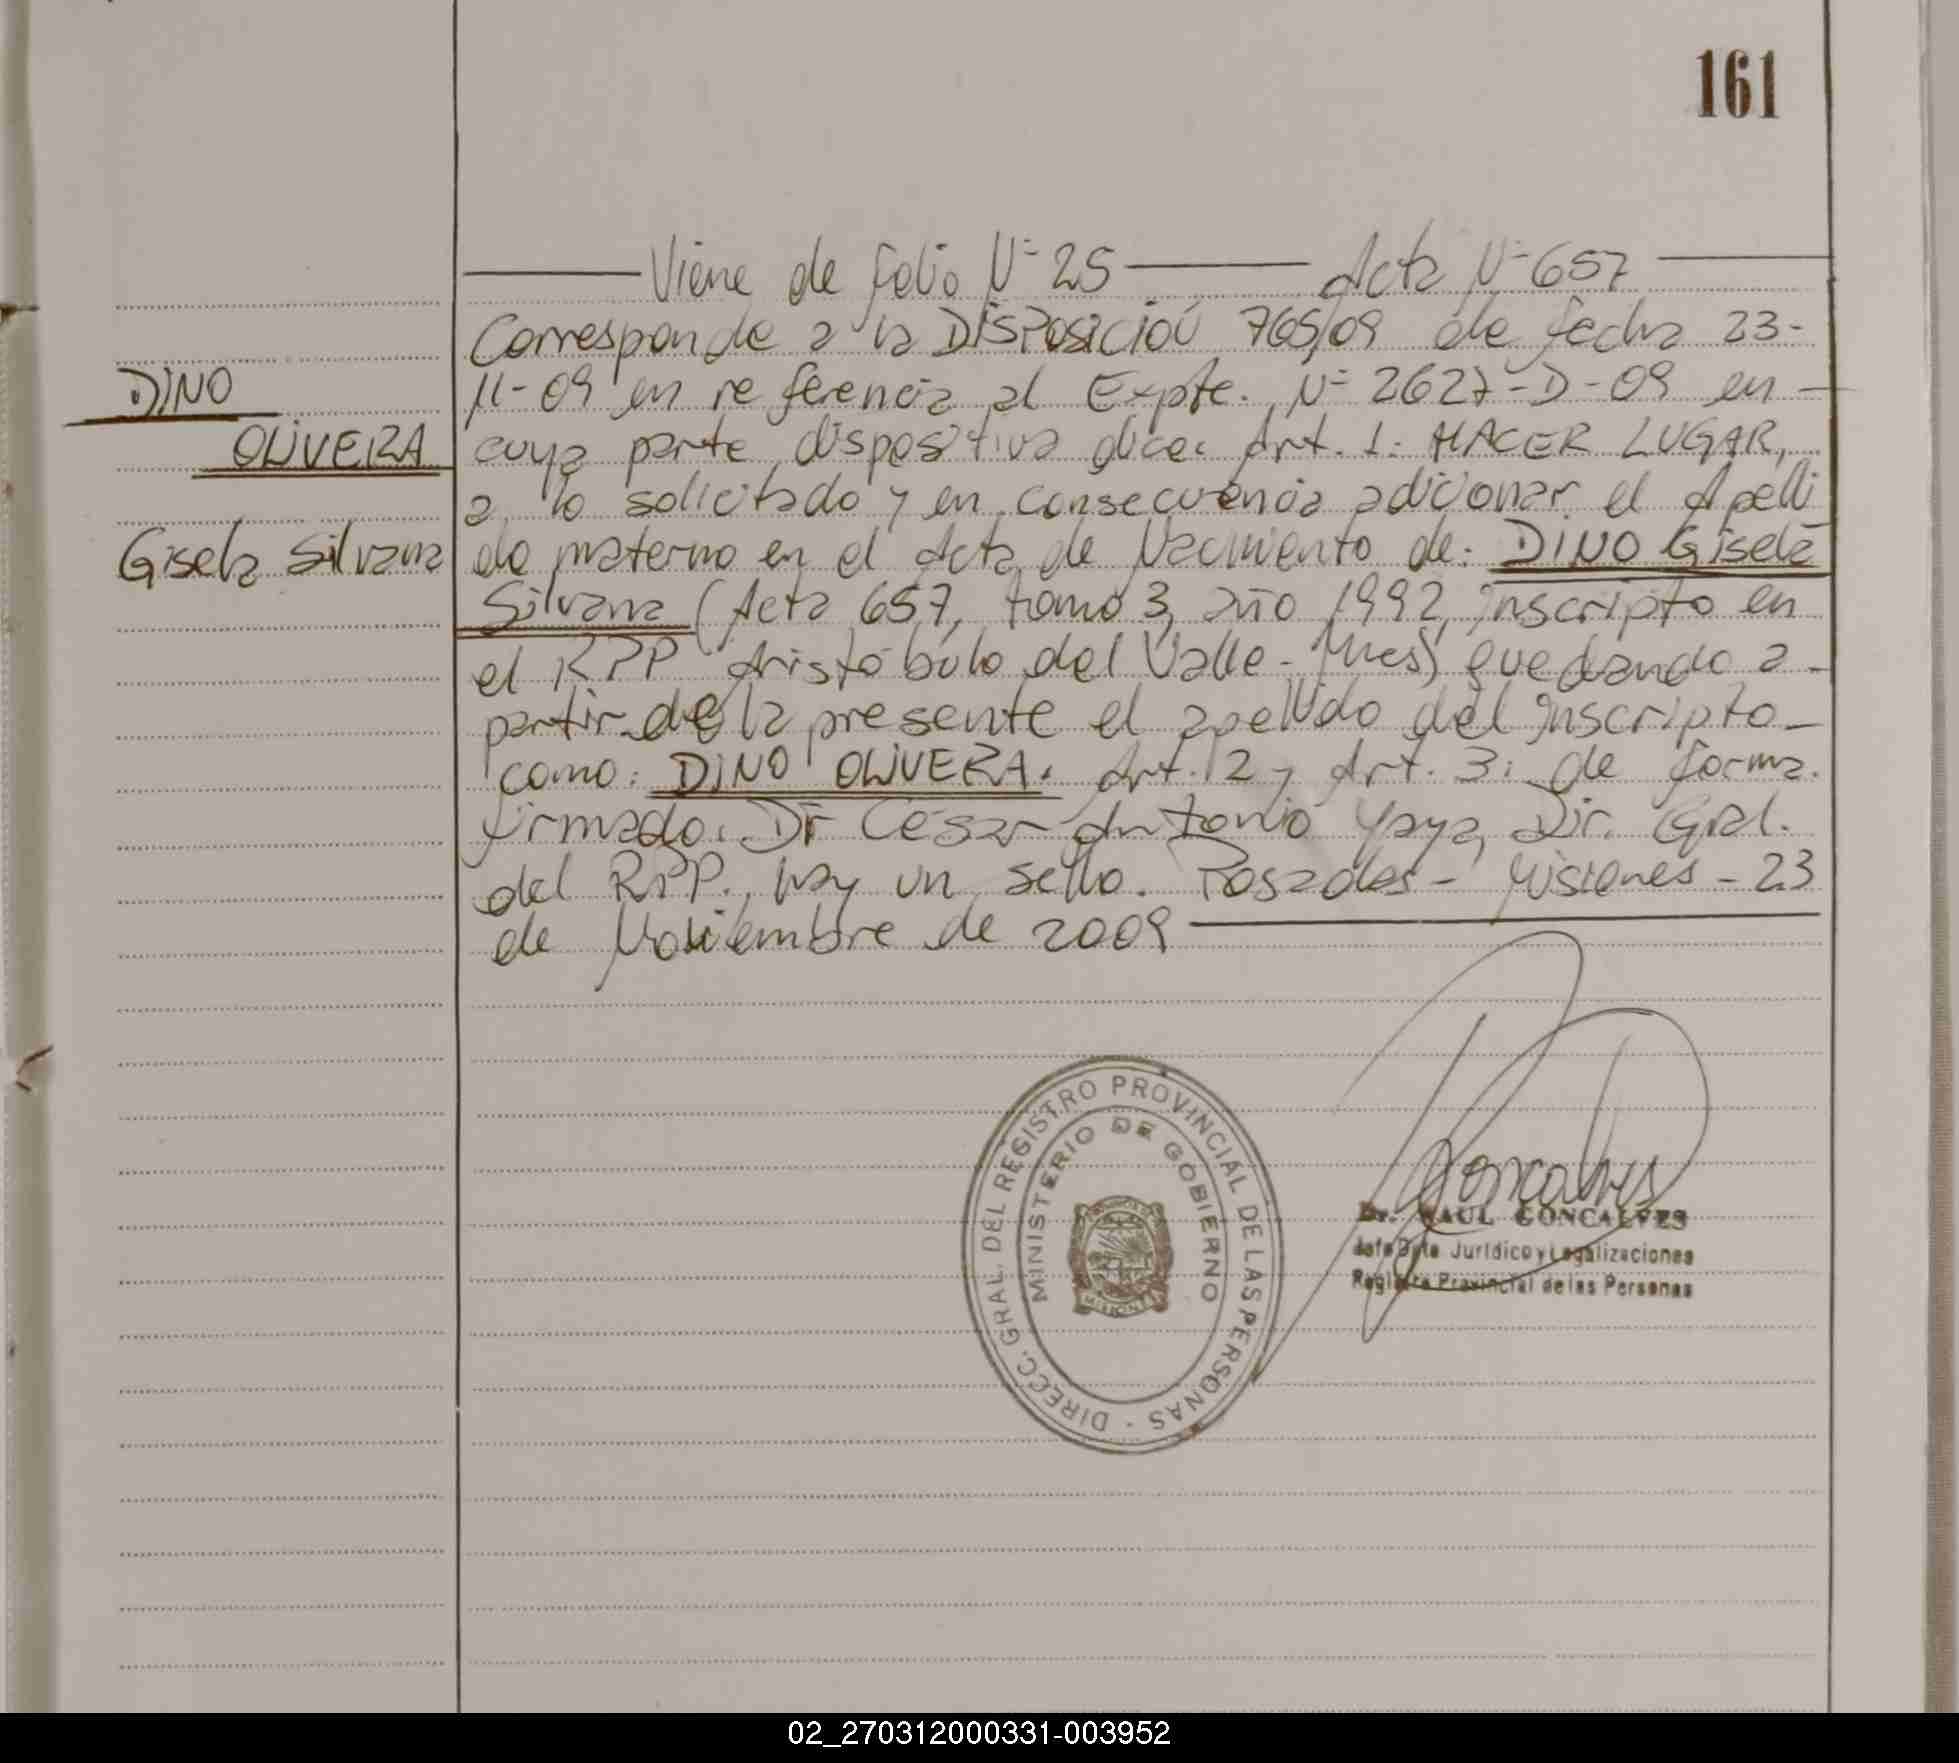 161
Viene de folio Nº 25 — Acta Nº 657
Corresponde a la DISPOSICIOÚ 765/09 de fecha 23-
11-09 en referencia al Expte. Nº 2627-D-09 en -
cuya parte dispositiva dice: Art. 1: HACER LUGAR,
a lo solicitado y en consecuencia adicionar el Apelli
do materno en el Acta de Nacimiento de: DINO Gisela
Silvana (Acta 657, tomo 3, año 1992, inscripto en
el RPP Aristóbulo del Valle - Mnes) quedando a -
partir de la presente el apellido del inscripto -
como: DINO OLIVERA. Art. 2 y Art. 3: de forma.
firmado: Dr Cesar Antonio Yaya, Dir. Gral.
del RPP. hay un sello. Posadas - Misiones - 23
de Noviembre de 2009
DINO
OLIVERA
Gisela Silvana
DIRECC. GRAL. DEL REGISTRO PROVINCIAL DE LAS PERSONAS -
MINISTERIO DE GOBIERNO
MISIONES
Goncalves
Dr. RAUL GONCALVES
Jefe Dpto Jurídico y Legalizaciones
Registro Provincial de las Personas
02_270312000331-003952